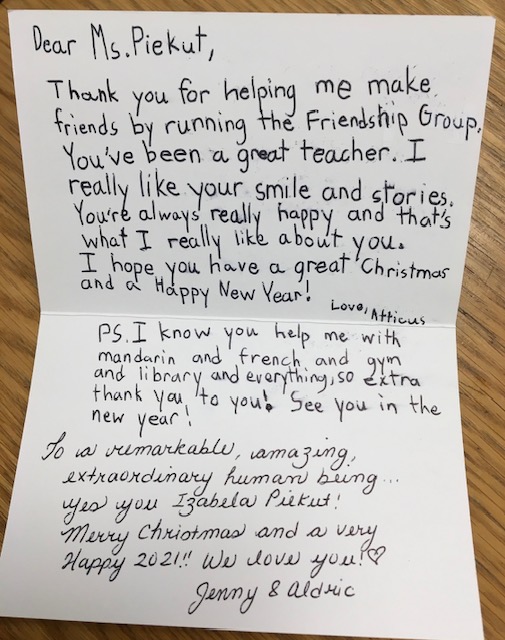 Dear Ms. Piekut,
Thank you for helping me make
friends by running the Friendship Group.
You've been a great teacher. I
really like your smile and stories.
You're always really happy and that's
what I really like about you.
I hope you have a great Christmas
and a Happy New Year!
Love, Atticus
PS. I know you help me with
mandarin and french and gym
and library and everything, so extra
thank you to you! See you in the
new year!
To a remarkable, amazing,
extraordinary human being...
yes you Izabela Piekut!
Merry Christmas and a very
Happy 2021!! We love you!♡
Jenny & Aldric